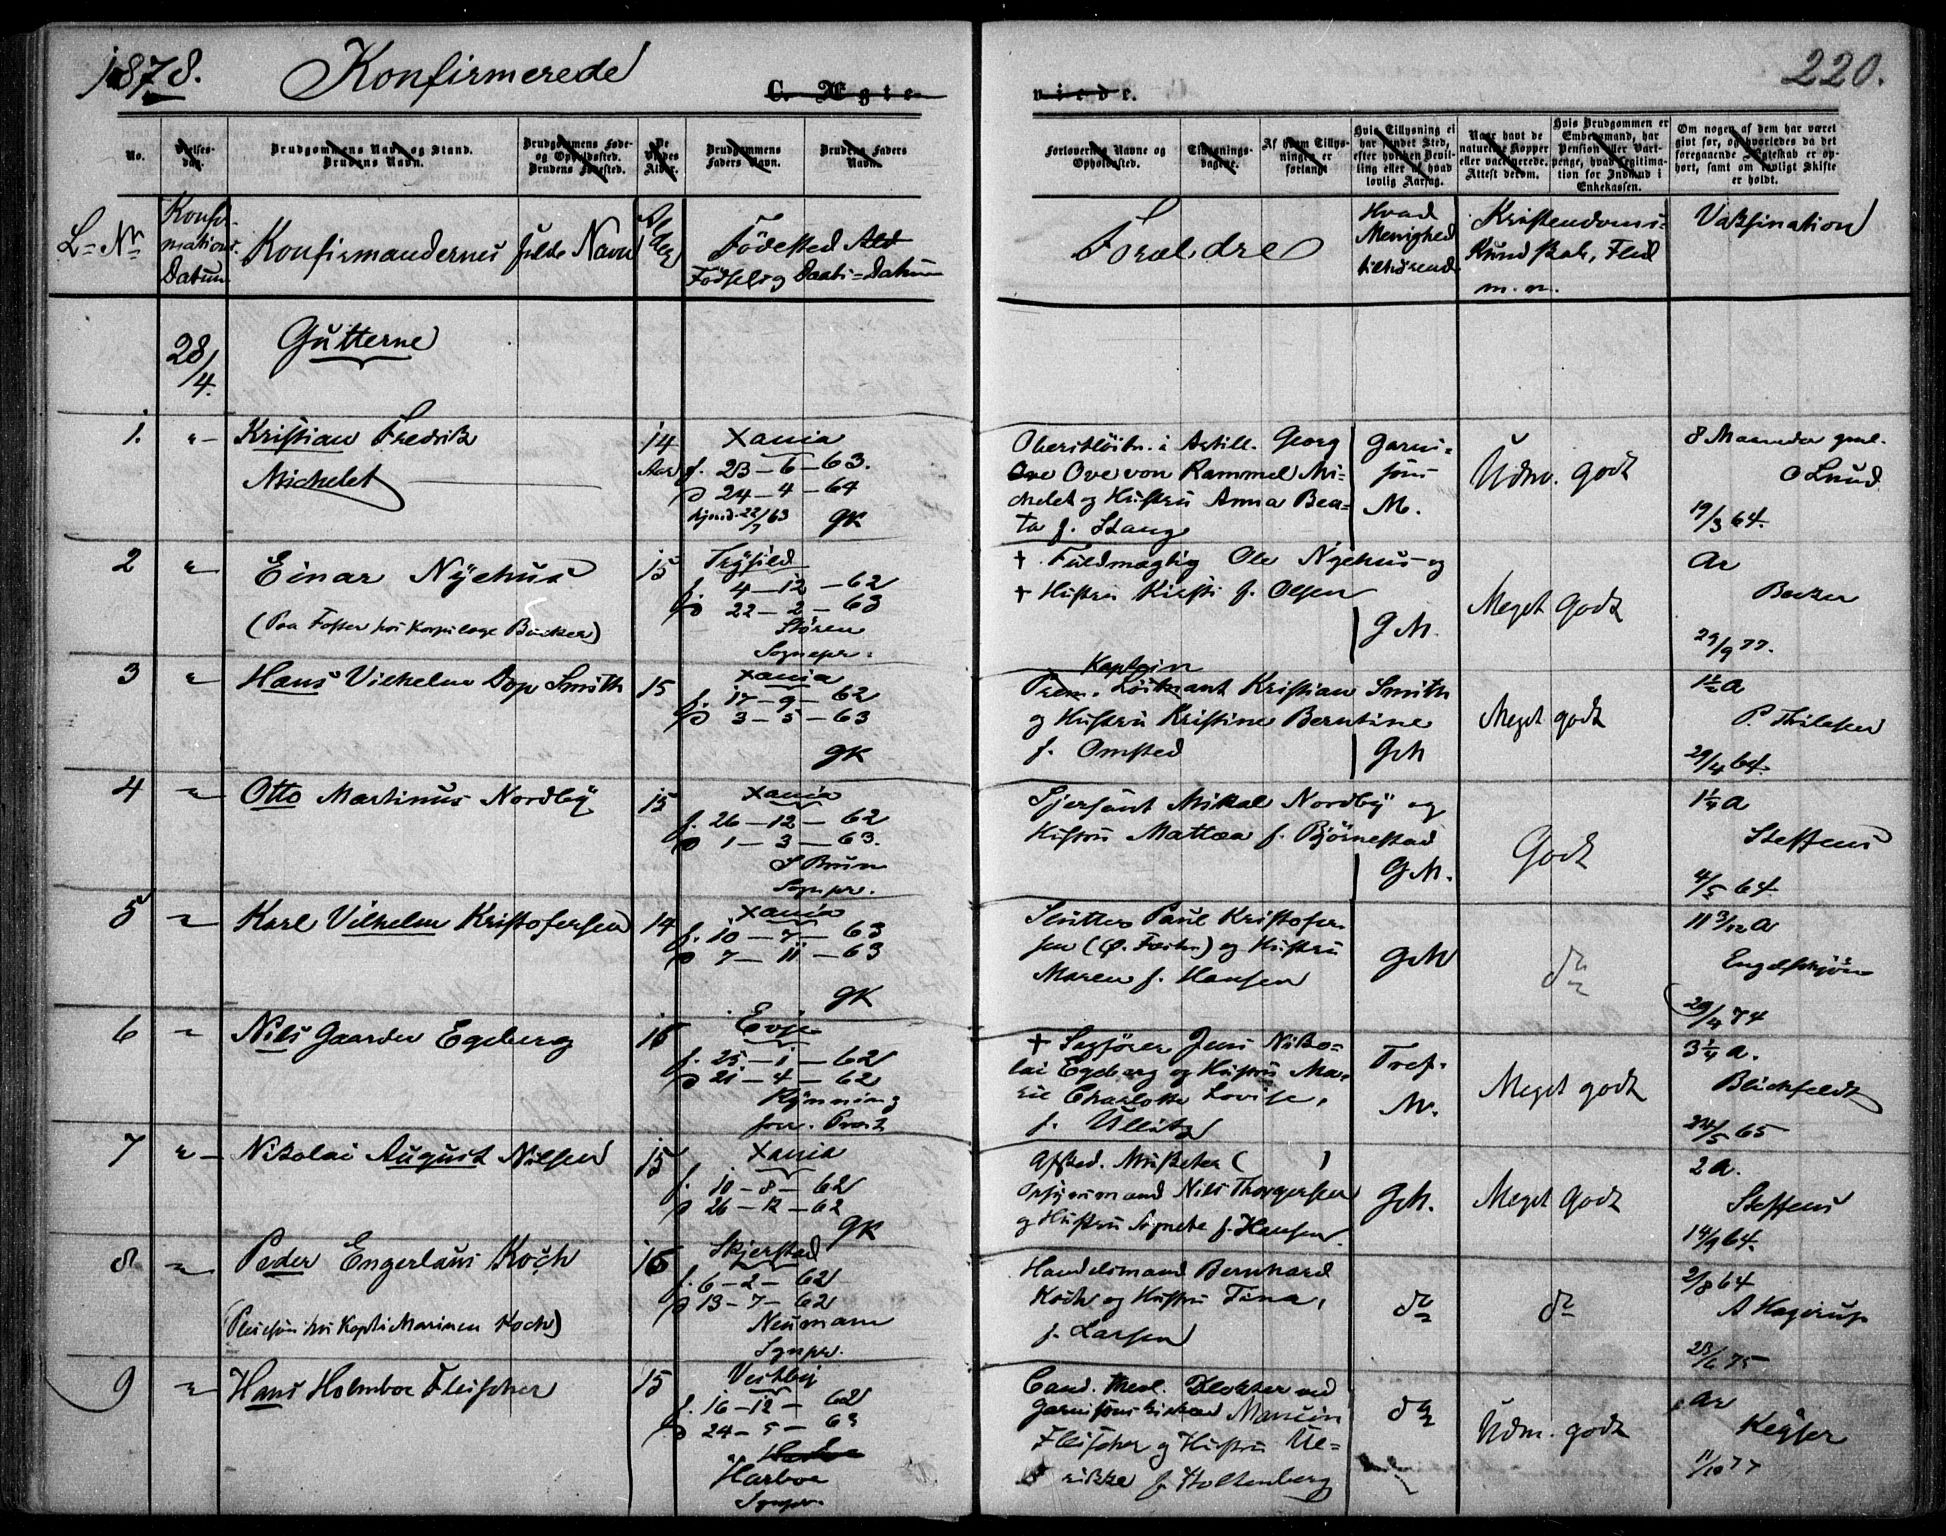 1878. Konfirmerede
C. Ægte
viede.
220.
No.
Vielses-
dag.
Brudgommens Navn og Stand.
Brudens Navn.
Brudgommens Føde-
og Opholdssted.
Brudens Fødested.
De
Viedes
Alder.
Brudgommens
Faders Navn.
Brudens Faders
Navn.
Forlovernes Navne og
Opholdssted.
Tillysnings-
dagene.
Af hvem Tillys-
ningen er
forlangt
Hvis Tillysning ei
har fundet Sted,
efter hvilken Bevil-
ling eller af hvad
lovlig Aarsag.
Naar havt de
naturlige Kopper
eller vaccinerede.
Attest derom.
Hvis Brudgommen er
Embedsmand, har
Pension eller Vart-
penge, hvad Legitima-
tion for Indskud i
Enkekassen.
Om nogen af dem har været
gift før, og hvorledes da det
foregaaende Ægteskab er op-
hørt, samt om lovligt Skifte
er holdt.
L= Nr
Konfir-
mations-
Datum
Konfirmandernes fulde Navn
Alder
Fødested Ald
Fødsels og Daabs=Datum
Forældre
Hvad
Menighed
tilhørende
Kristendoms-
kundskab, Flid
m. m.
Vaksination
28/4.
Gutterne
1. "
Kristian Fredrik
Michelet
14
Aar
Xania
f. 23 – 6 – 63.
D 24 – 4 – 64
GK
Oberstløitn. i Artill. Georg
Ove Ove von Rammel Mi-
chelet og Hustru Anna Bea-
ta f. Stang
Garni-
sons
M.
Udm. godt
8 Maaneder gml.
O Lund
19/3 64.
2 "
Einar Nyehus
(Paa Foster hos Korpslæge Bøcker)
15
Trysild
f. 4 – 12 – 62
D 22 – 2 – 63
Støren
Sognepr.
† Fuldmægtig Ole Nyehus og
† Hustru Kirsti f. Olsen
G M.
Meget godt
Ar
29/9 77.
3 "
Hans Vilhelm Dop Smith
15
Xania
f. 17 – 9 – 62
D 3 – 5 – 63
GK
Kaptein
Prem. Løitnant Kristian Smith
og Hustru Kristine Berntine
f. Omsted
GM
Meget godt
1½ a
29/4 64.
4 "
Otto Martinus Nordby
15
Xania
f. 26 – 12 – 62
D 1 – 3 – 63.
S Brun
Sognpr.
Sjersant Mikal Nordby og
Hustru Mattea f. Bjørnestad
G M.
Godt
1¼ a
Steffens
4/5 64.
5 "
Karl Vilhelm Kristofersen
14
Xania
f. 10 – 7 – 63
D 7 – 11 – 63
GK
Slutter Paul Kristofer-
sen (Ø. Fæstn.) og Hustru
Maren f. Hansen
GM
do
11 3/12 a
29/4 74
6 "
Nils Gaarder Egeberg
16
Evje
f. 25 – 1 – 62
D 21 – 4 – 62
† Sagfører Jens Niko-
lai Egeberg og Hustru Ma-
rie Charlotte Lovise,
f. Ullitz
Tref.
M.
Meget godt
3¼ a.
Blichfeldt
24/5 65
7 "
Nikolai August Nilsen
15
Xania
f. 10 – 8 – 62
D 26 – 12 – 62
GK
Afsked. Musketer ( )
Nils Thorgersen
og Hustru Agnete f. Hansen
GM.
Meget godt
2 a.
Steffens
14/9 64.
8 "
Peder Engerlaus Koch
(Pleiesøn hos Kapt. Marinen Koch)
16
Skjerstad
f. 6 – 2 – 62
D 13 – 7 – 62
Neumann
Sognpr.
Handelsmand Bernhard
Koch og Hustru Tina,
f. Larsen
do
do
2/8 64
A Hagerup
9 "
Hans Holmboe Fleischer
15
Vestby
f. 16 – 12 – 62
D 24 – 5 – 63
Harboe
Sognpr.
Cand. theol. Klokker ved
Garnisons kirken
Fleischer og Hustru Ul-
rikke f. Holtenberg
do
Udm. godt
Ar
Keyser
11/10 77